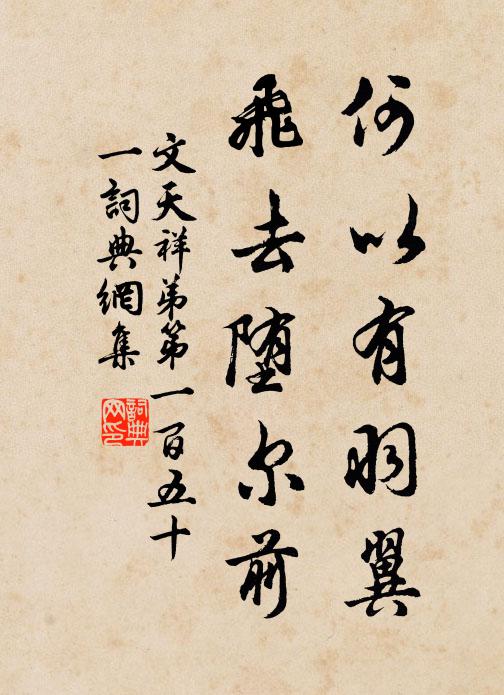 何以有羽翼
飛去堕尔前
文天祥弟第一百五十
一詞典網集
詞典网印